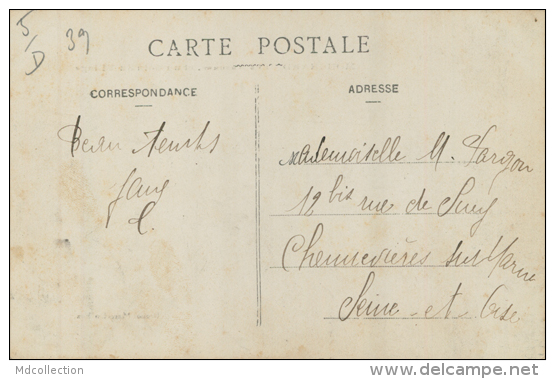 5/D 39
CARTE POSTALE
CORRESPONDANCE
ADRESSE
Beau temps
L.
Mademoiselle M. Pargon
12 bis rue de Sucy
Chennevières sur Marne
Seine-et-Oise
Mdcollection
delcampe.net